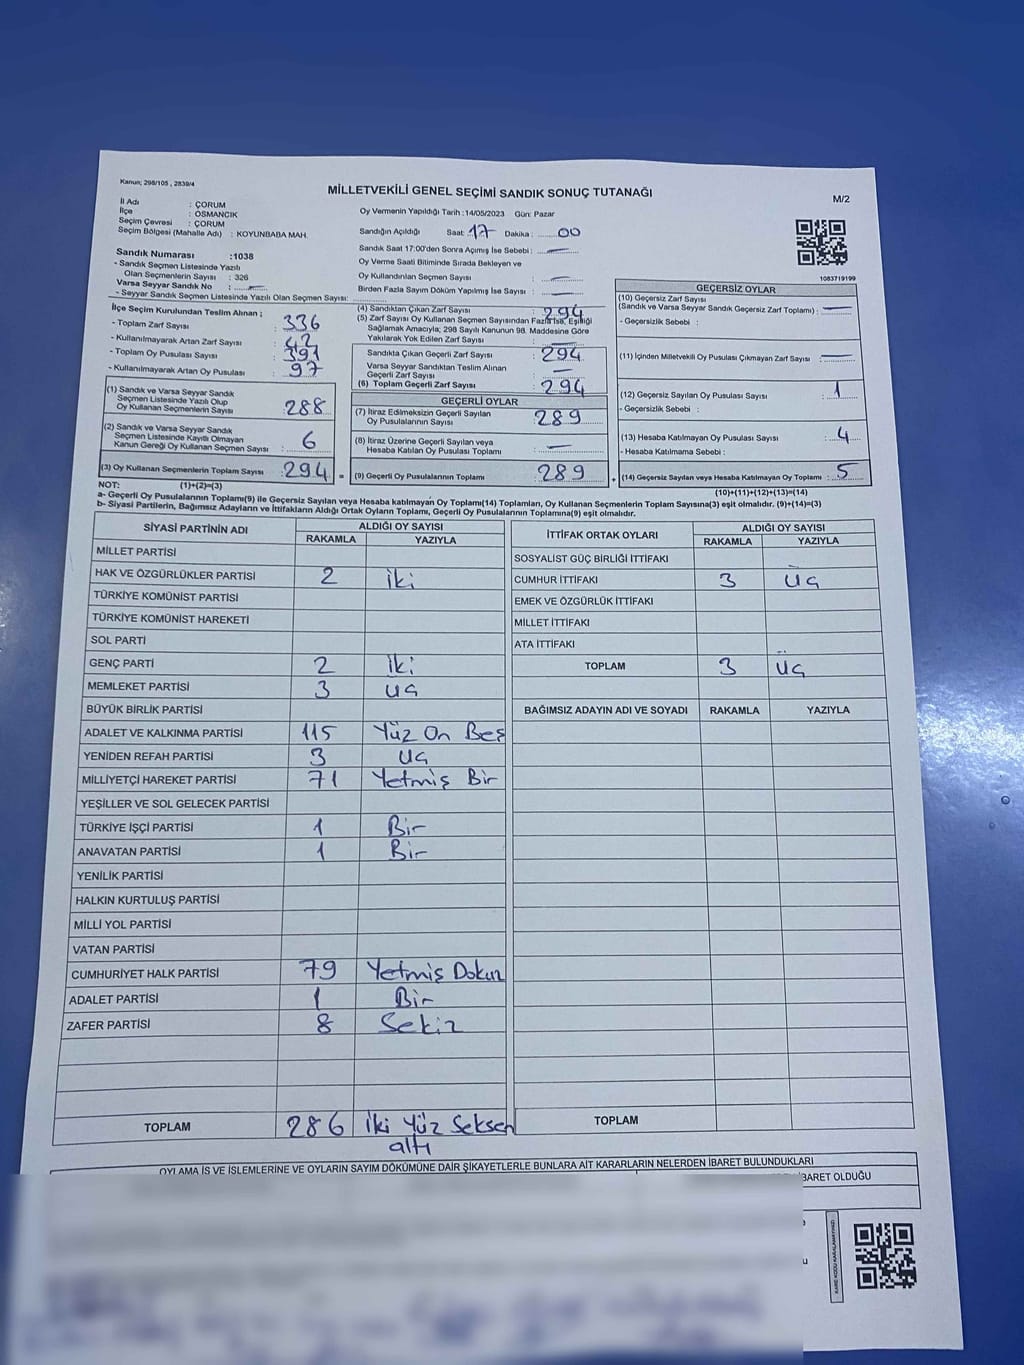 Kanun; 298/105 , 2839/4
MİLLETVEKİLİ GENEL SEÇİMİ SANDIK SONUÇ TUTANAĞI
M/2
İl Adı : ÇORUM
İlçe : OSMANCIK
Seçim Çevresi : ÇORUM
Seçim Bölgesi (Mahalle Adı) : KOYUNBABA MAH.
Oy Vermenin Yapıldığı Tarih :14/05/2023 Gün: Pazar
Sandığın Açıldığı Saat 17 Dakika : 00
Sandık Saat 17:00'den Sonra Açımış İse Sebebi : —
Oy Verme Saati Bitiminde Sırada Bekleyen ve
Oy Kullandırılan Seçmen Sayısı : —
Birden Fazla Sayım Döküm Yapılmış İse Sayısı : —
Sandık Numarası :1038
- Sandık Seçmen Listesinde Yazılı
Olan Seçmenlerin Sayısı : 326
Varsa Seyyar Sandık No : —
- Seyyar Sandık Seçmen Listesinde Yazılı Olan Seçmen Sayısı:
1083719199
İlçe Seçim Kurulundan Teslim Alınan ;
- Toplam Zarf Sayısı : 336
- Kullanılmayarak Artan Zarf Sayısı : 42
- Toplam Oy Pusulası Sayısı : 391
- Kullanılmayarak Artan Oy Pusulası : 97
(1) Sandık ve Varsa Seyyar Sandık
Seçmen Listesinde Yazılı Olup
Oy Kullanan Seçmenlerin Sayısı : 288
(2) Sandık ve Varsa Seyyar Sandık
Seçmen Listesinde Kayıtlı Olmayan
Kanun Gereği Oy Kullanan Seçmen Sayısı : 6
(3) Oy Kullanan Seçmenlerin Toplam Sayısı : 294 =
(4) Sandıktan Çıkan Zarf Sayısı : 294
(5) Zarf Sayısı Oy Kullanan Seçmen Sayısından Fazla İse, Eşitliği
Sağlamak Amacıyla; 298 Sayılı Kanunun 98. Maddesine Göre
Yakılarak Yok Edilen Zarf Sayısı : —
Sandıkta Çıkan Geçerli Zarf Sayısı : 294
Varsa Seyyar Sandıktan Teslim Alınan
Geçerli Zarf Sayısı : —
(6) Toplam Geçerli Zarf Sayısı : 294
GEÇERLİ OYLAR
(7) İtiraz Edilmeksizin Geçerli Sayılan
Oy Pusulalarının Sayısı : 289
(8) İtiraz Üzerine Geçerli Sayılan veya
Hesaba Katılan Oy Pusulası Toplamı : —
(9) Geçerli Oy Pusulalarının Toplamı : 289 +
GEÇERSİZ OYLAR
(10) Geçersiz Zarf Sayısı
(Sandık ve Varsa Seyyar Sandık Geçersiz Zarf Toplamı) : —
- Geçersizlik Sebebi :
(11) İçinden Milletvekili Oy Pusulası Çıkmayan Zarf Sayısı : —
(12) Geçersiz Sayılan Oy Pusulası Sayısı : 1
- Geçersizlik Sebebi :
(13) Hesaba Katılmayan Oy Pusulası Sayısı : 4
- Hesaba Katılmama Sebebi :
(14) Geçersiz Sayılan veya Hesaba Katılmayan Oy Toplamı : 5
NOT: (1)+(2)=(3)
(10)+(11)+(12)+(13)=(14)
a- Geçerli Oy Pusulalarının Toplamı(9) ile Geçersiz Sayılan veya Hesaba katılmayan Oy Toplamı(14) Toplamları, Oy Kullanan Seçmenlerin Toplam Sayısına(3) eşit olmalıdır. (9)+(14)=(3)
b- Siyasi Partilerin, Bağımsız Adayların ve İttifakların Aldığı Ortak Oyların Toplamı, Geçerli Oy Pusulalarının Toplamına(9) eşit olmalıdır.
SİYASİ PARTİNİN ADI ALDIĞI OY SAYISI
RAKAMLA YAZIYLA
MİLLET PARTİSİ
HAK VE ÖZGÜRLÜKLER PARTİSİ 2 iki
TÜRKİYE KOMÜNİST PARTİSİ
TÜRKİYE KOMÜNİST HAREKETİ
SOL PARTİ
GENÇ PARTİ 2 iki
MEMLEKET PARTİSİ 3 üç
BÜYÜK BİRLİK PARTİSİ
ADALET VE KALKINMA PARTİSİ 115 Yüz On Beş
YENİDEN REFAH PARTİSİ 3 üç
MİLLİYETÇİ HAREKET PARTİSİ 71 Yetmiş Bir
YEŞİLLER VE SOL GELECEK PARTİSİ
TÜRKİYE İŞÇİ PARTİSİ 1 Bir
ANAVATAN PARTİSİ 1 Bir
YENİLİK PARTİSİ
HALKIN KURTULUŞ PARTİSİ
MİLLİ YOL PARTİSİ
VATAN PARTİSİ
CUMHURİYET HALK PARTİSİ 79 Yetmiş Dokuz
ADALET PARTİSİ 1 Bir
ZAFER PARTİSİ 8 Sekiz
TOPLAM 286 iki Yüz Seksen
altı
İTTİFAK ORTAK OYLARI ALDIĞI OY SAYISI
RAKAMLA YAZIYLA
SOSYALİST GÜÇ BİRLİĞİ İTTİFAKI
CUMHUR İTTİFAKI 3 üç
EMEK VE ÖZGÜRLÜK İTTİFAKI
MİLLET İTTİFAKI
ATA İTTİFAKI
TOPLAM 3 üç
BAĞIMSIZ ADAYIN ADI VE SOYADI RAKAMLA YAZIYLA
TOPLAM
OYLAMA İŞ VE İŞLEMLERİNE VE OYLARIN SAYIM DÖKÜMÜNE DAİR ŞİKAYETLERLE BUNLARA AİT KARARLARIN NELERDEN İBARET BULUNDUKLARI
BARET OLDUĞU